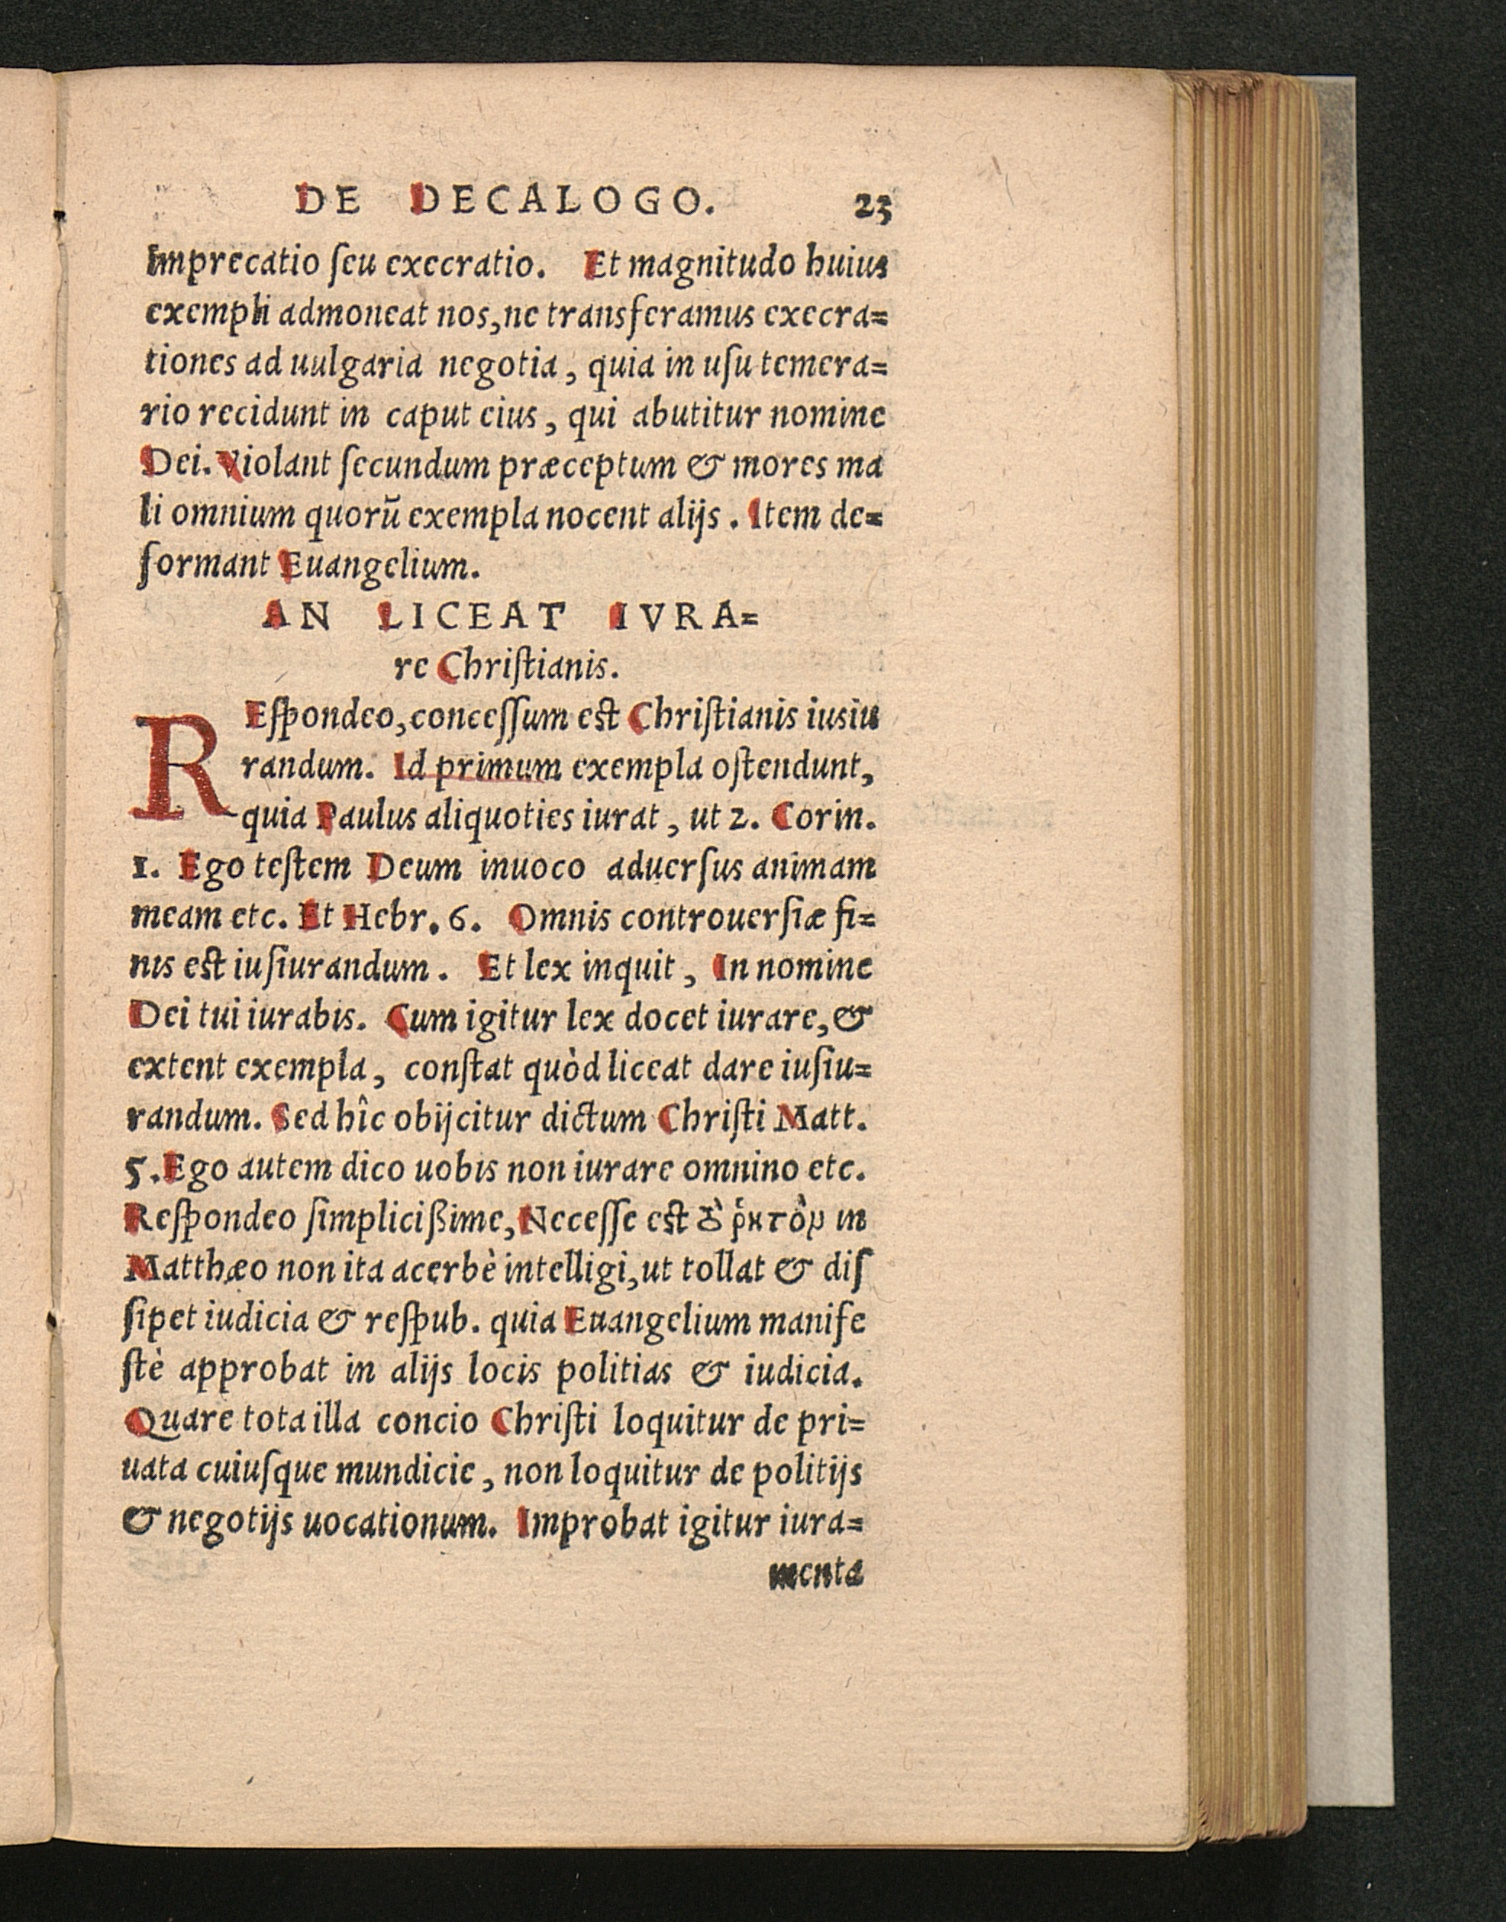 DE DECALOGO. 23
imprecatio ſeu execratio. Et magnitudo huius
exempli admoneat nos, ne transferamus execra=
tiones ad uulgaria negotia, quia in uſu temera=
rio recidunt in caput eius, qui abutitur nomine
Dei. Violant ſecundum præceptum & mores ma
li omnium quorũ exempla nocent alijs. Item de=
formant Euangelium.
AN LICEAT IVRA=
re Chriſtianis.
REſpondeo, conceſſum eſt Chriſtianis iusiu
randum. Id primum exempla oſtendunt,
quia Paulus aliquoties iurat, ut 2. Corin.
1. Ego teſtem Deum inuoco aduerſus animam
meam etc. Et Hebr. 6. Omnis controuerſiæ fi=
nis eſt iuſiurandum. Et lex inquit, In nomine
Dei tui iurabis. Cum igitur lex docet iurare, &
extent exempla, conſtat quòd liceat dare iuſiu=
randum. Sed hîc obijcitur dictum Chriſti Matt.
5. Ego autem dico uobis non iurare omnino etc.
Reſpondeo ſimplicißime, Neceſſe eſt τὸ ῥητὸν in
Matthæo non ita acerbè intelligi, ut tollat & diſ
ſipet iudicia & reſpub. quia Euangelium manife
ſtè approbat in alijs locis politias & iudicia.
Quare tota illa concio Chriſti loquitur de pri=
uata cuiuſque mundicie, non loquitur de politijs
& negotijs uocationum. Improbat igitur iura=
menta